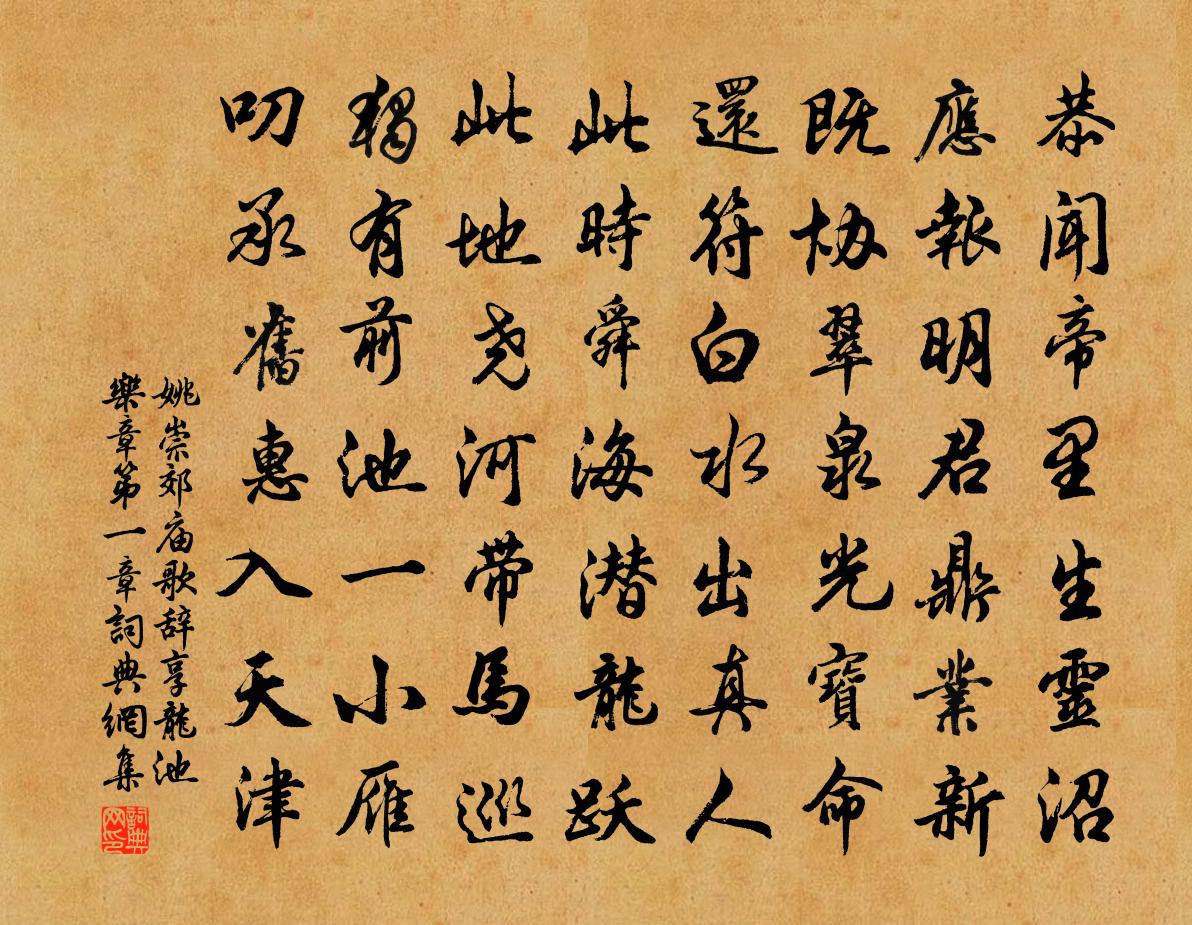 恭聞帝里生靈沼
應報明君鼎業新
既协翠泉光寶命
還符白水出真人
此時舜海潜龍跃
此地尧河带馬巡
獨有前池一小雁
叨承舊惠入天津
姚崇郊庙歌辞享龍池
樂章第一章詞典網集
詞典
网印